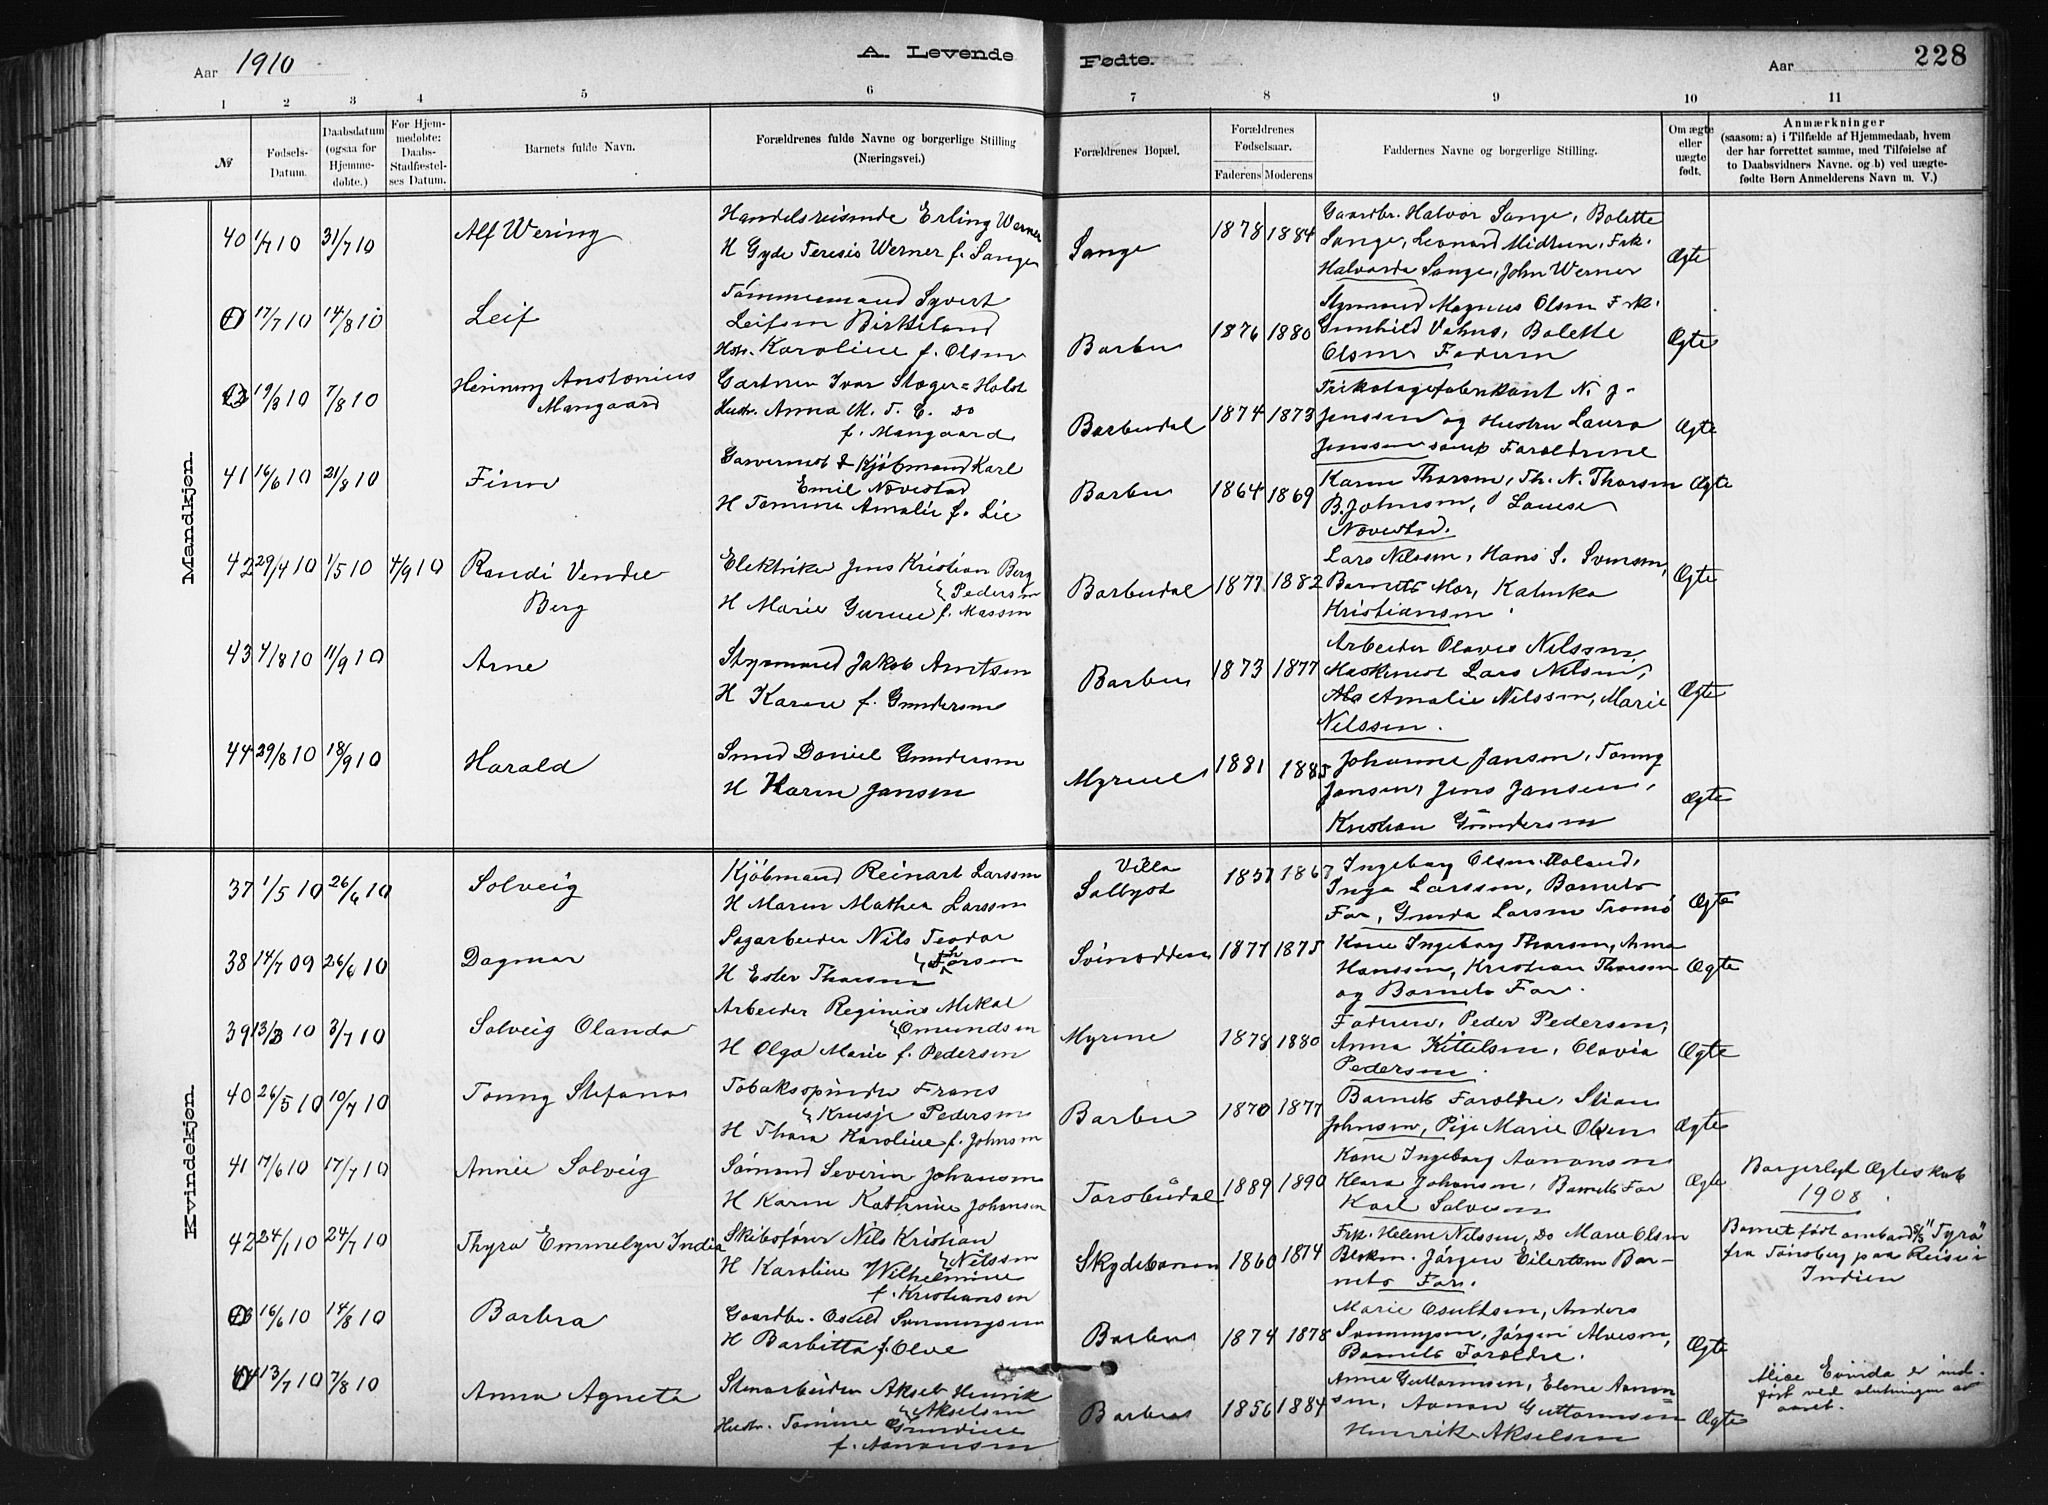 Aar 1910 A. Levende Fødte. Aar 228
1 2 3 4 5 6 7 8 9 10 11
№ Fødsels-Datum. Daabsdatum (ogsaa for Hjemme-døbte.) For Hjem-medøbte: Daabs-Stadfæstel-ses Datum. Barnets fulde Navn. Forældrenes fulde Navne og borgerlige Stilling (Næringsvei.) Forældrenes Bopæl. Forældrenes Fødselsaar. Faderens Moderens Faddernes Navne og borgerlige Stilling. Om ægte eller uægte født. Anmærkninger (saasom: a) i Tilfælde af Hjemmedaab, hvem der har forrettet samme, med Tilføielse af to Daabsvidners Navne. og b) ved uægte-fødte Børn Anmelderens Navn m. V.)
Mandkjøn.
40 1/7 10 31/7 10 Alf Wering Handelsreisende Erling Werner Sange 1878 1884 Gaardbr. Halvor Sange, Bolette
H Gyde Teresis Werner f. Sange Sange, Leonard Midtun, Frk.
Halvarda Sange, John Werner Ægte
17/7 10 14/8 10 Leif Tømmermand Syvert
Leifsen Birkeland
Hstr. Karoline f. Olsen Barbu 1876 1880 Styrmand Magnus Olsen Frk.
Gunhild Vahns, Bolette
Olsen Faderen Ægte
19/3 10 7/8 10 Henning Anstonius
Mangaard Gartner Ivar Stæger-Holst
Hustr. Anna M. T. C. Do
f. Mangaard Barbudal 1874 1873 Trikotagefabrikant N. J.
Jenssen og Hustru Laura
Jenssen samt Forældrene Ægte
41 16/6 10 21/8 10 Finn Garvermst & Kjøbmand Karl
Emil Nævestad
H Tomine Amalie f. Lie Barbu 1864 1869 Karen Thorsen, Th. N. Thorsen
B. Johnsen, Louise
Nævestad. Ægte
42 29/4 10 1/5 10 4/9 10 Randi Vendie
Berg Elektriker Jens Kristian Berg
Pedersen
H Marie f. Massen Barbudal 1877 1882 Lars Nilssen, Hans S. Svensen,
Barnets Mor, Kalinka
Kristiansen Ægte
43 4/8 10 11/9 10 Arne Styrmand Jakob Arntsen
H Karen f. Gundersen Barbu 1873 1877 Arbeider Olavis Nilssen
Maskinist Lars Nilsen,
Amalie Nilssen, Marie
Nilssen. Ægte
44 29/8 10 18/9 10 Harald Smed Daniel Gundersen
H Karen Jansen Myrene 1881 1885 Johanne Jansen, Tonny
Jansen, Jens Jansen,
Kristian Gundersen Ægte
Kvindekjøn.
37 1/5 10 26/6 10 Solveig Kjøbmand Reinart Larssen
H Maren Mathea Larssen Villa
Solbyst 1857 1867 Ingeborg Olsen Roland,
Inga Larssen, Barnets
Far, Gunda Larsen Tromø Ægte
38 14/7 09 26/6 10 Dagmar Sagarbeider Nils Teodor
Thorsen
H Ester Thorsen Svinodden 1877 1875 Kone Ingeborg Thorsen, Anna
Hanssen, Kristian Thorsen
og Barnets Far. Ægte
39 13/3 10 3/7 10 Solveig Olanda Arbeider Reginius Mikal
Omundsen
H Olga Marie f. Pedersen Myrene 1878 1880 Faderen, Peder Pedersen,
Anna Kittelsen, Olavia
Pedersen. Ægte
40 26/5 10 10/7 10 Tonny Stefana Tobaksspinder Frans
Krusje Pedersen
H Thora Karoline f. Johnsen Barbu 1870 1877 Barnets Forældre, Stian
Johnsen, Pige Marie Olsen Ægte
41 17/6 10 17/7 10 Annie Solveig Sømand Severin Johansen
H Karen Kathrine Johansen Torsbudal 1889 1890 Kone Ingeborg Aanonsen
Klara Johansen, Barnets Far
Karl Salvesen Ægte Borgerligt Ægteskab
1908
42 24/1 10 24/7 10 Thyra Emmelyn India Skibsfører Nils Kristian
Nilssen
H Karoline Wilhelmine
f. Kristiansen Skydebanen 1860 1874 Frk. Helene Nilssen, Do Marie Olsen
Blokm. Jørgen Eilertsen Bar-
nets Far. Barnet født ombord S/S "Tyra"
fra Tønsberg paa Reise i
Indien
16/6 10 14/8 10 Barbra Gaardbr. Osuld Sønningsen
H Barbitta f. Olve Barbu 1874 1878 Marie Osuldsen, Anders
Sønningsen, Jørgine Alvesen,
Barnets Forældre. Ægte
13/7 10 7/8 10 Anna Agneta Stenarbeider Aksel Henrik
Akselsen
Hustr. Tomine Gundine
f. Aanonsen Barbu 1856 1884 Anne Guttormsen, Elene Aanon=
sen, Aanon Guttormsen
Henrik Akselsen Ægte Alice Evinda er ind-
ført ved slutningen av
aaret.